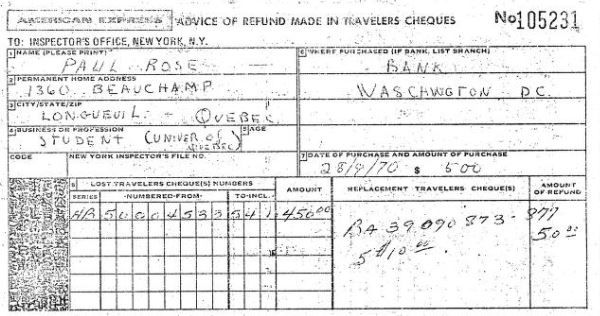 AMERICAN EXPRESS ADVICE OF REFUND MADE IN TRAVELERS CHEQUES No105231
TO: INSPECTOR'S OFFICE, NEW YORK, N.Y.
1 NAME (PLEASE PRINT) 6 WHERE PURCHASED (IF BANK, LIST BRANCH)
PAUL ROSE BANK
2 PERMANENT HOME ADDRESS
1360 BEAUCHAMP WASCHWGTON D.C.
3 CITY/STATE/ZIP
LONGUEUIL - QUEBEC
4 BUSINESS OR PROFESSION 5 AGE
STUDENT (UNIVER OF QUEBEC)
CODE NEW YORK INSPECTOR'S FILE NO. 7 DATE OF PURCHASE AND AMOUNT OF PURCHASE
28/9/70 $ 500
8 LOST TRAVELERS CHEQUE(S) NUMBERS AMOUNT REPLACEMENT TRAVELERS CHEQUE(S) AMOUNT OF REFUND
SERIES NUMBERED-FROM TO-INCL.
AB 50004533 541 450.00 BA 39090873-877 50.00
5 $10.00